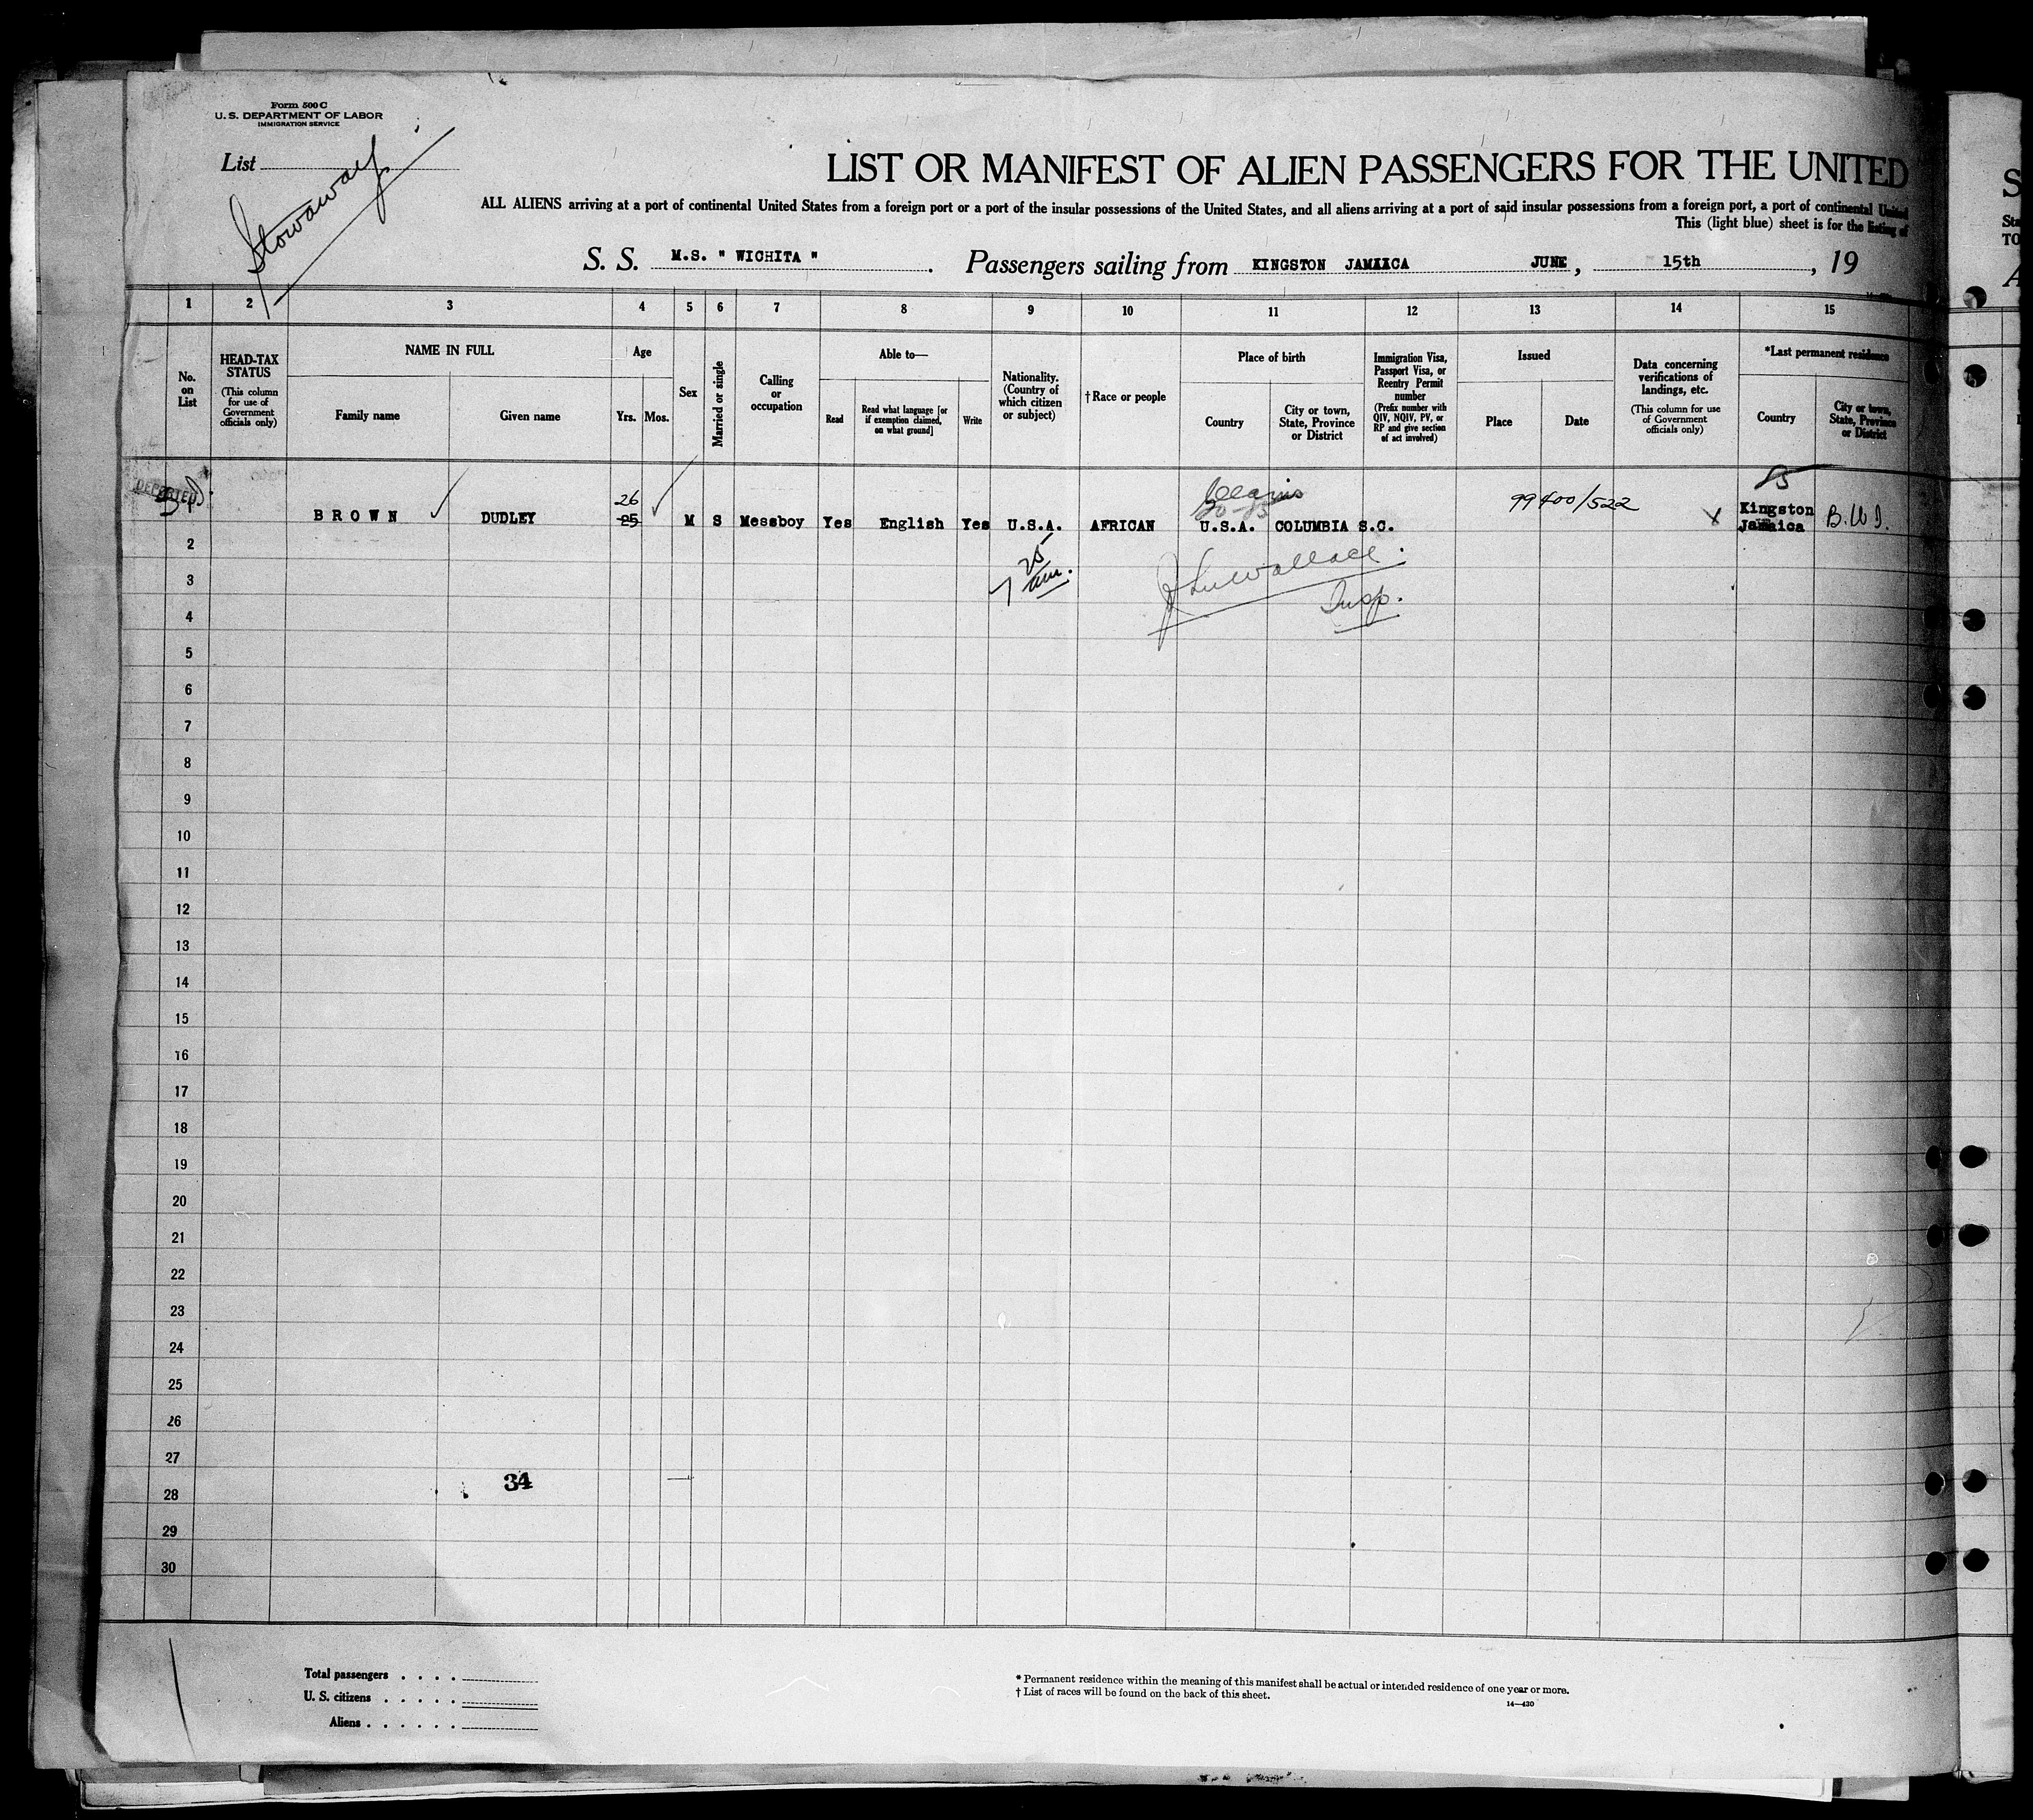 Form 500 C
U. S. DEPARTMENT OF LABOR
IMMIGRATION SERVICE
List
Stowaway
LIST OR MANIFEST OF ALIEN PASSENGERS FOR THE UNITED
ALL ALIENS arriving at a port of continental United States from a foreign port or a port of the insular possessions of the United States, and all aliens arriving at a port of said insular possessions from a foreign port, a port of continental United
This (light blue) sheet is for the listing of
S. S. M.S. " WICHITA " . Passengers sailing from KINGSTON JAMAICA JUNE , 15th , 19
1 2 3 4 5 6 7 8 9 10 11 12 13 14 15
No. on List
HEAD-TAX STATUS
(This column for use of Government officials only)
NAME IN FULL
Family name
Given name
Age
Yrs. Mos.
Sex
Married or single
Calling or occupation
Able to—
Read
Read what language [or if exemption claimed, on what ground]
Write
Nationality. (Country of which citizen or subject)
† Race or people
Place of birth
Country
City or town, State, Province or District
Immigration Visa, Passport Visa, or Reentry Permit number
(Prefix number with QIV, NQIV, PV, or RP and give section of act involved)
Issued
Place
Date
Data concerning verifications of landings, etc.
(This column for use of Government officials only)
*Last permanent residence
Country
City or town, State, Province or District
DEPORTED
26
99400/522
BROWN DUDLEY 25 M S Messboy Yes English Yes U.S.A. AFRICAN U.S.A. COLUMBIA S.C. X Kingston Jamaica B.W.I.
25
Wallace
Insp.
2
3
4
5
6
7
8
9
10
11
12
13
14
15
16
17
18
19
20
21
22
23
24
25
26
27
34
28
29
30
Total passengers . . . .
U. S. citizens . . . . .
Aliens . . . . . .
* Permanent residence within the meaning of this manifest shall be actual or intended residence of one year or more.
† List of races will be found on the back of this sheet.
14—430
S
Sta
TO
A